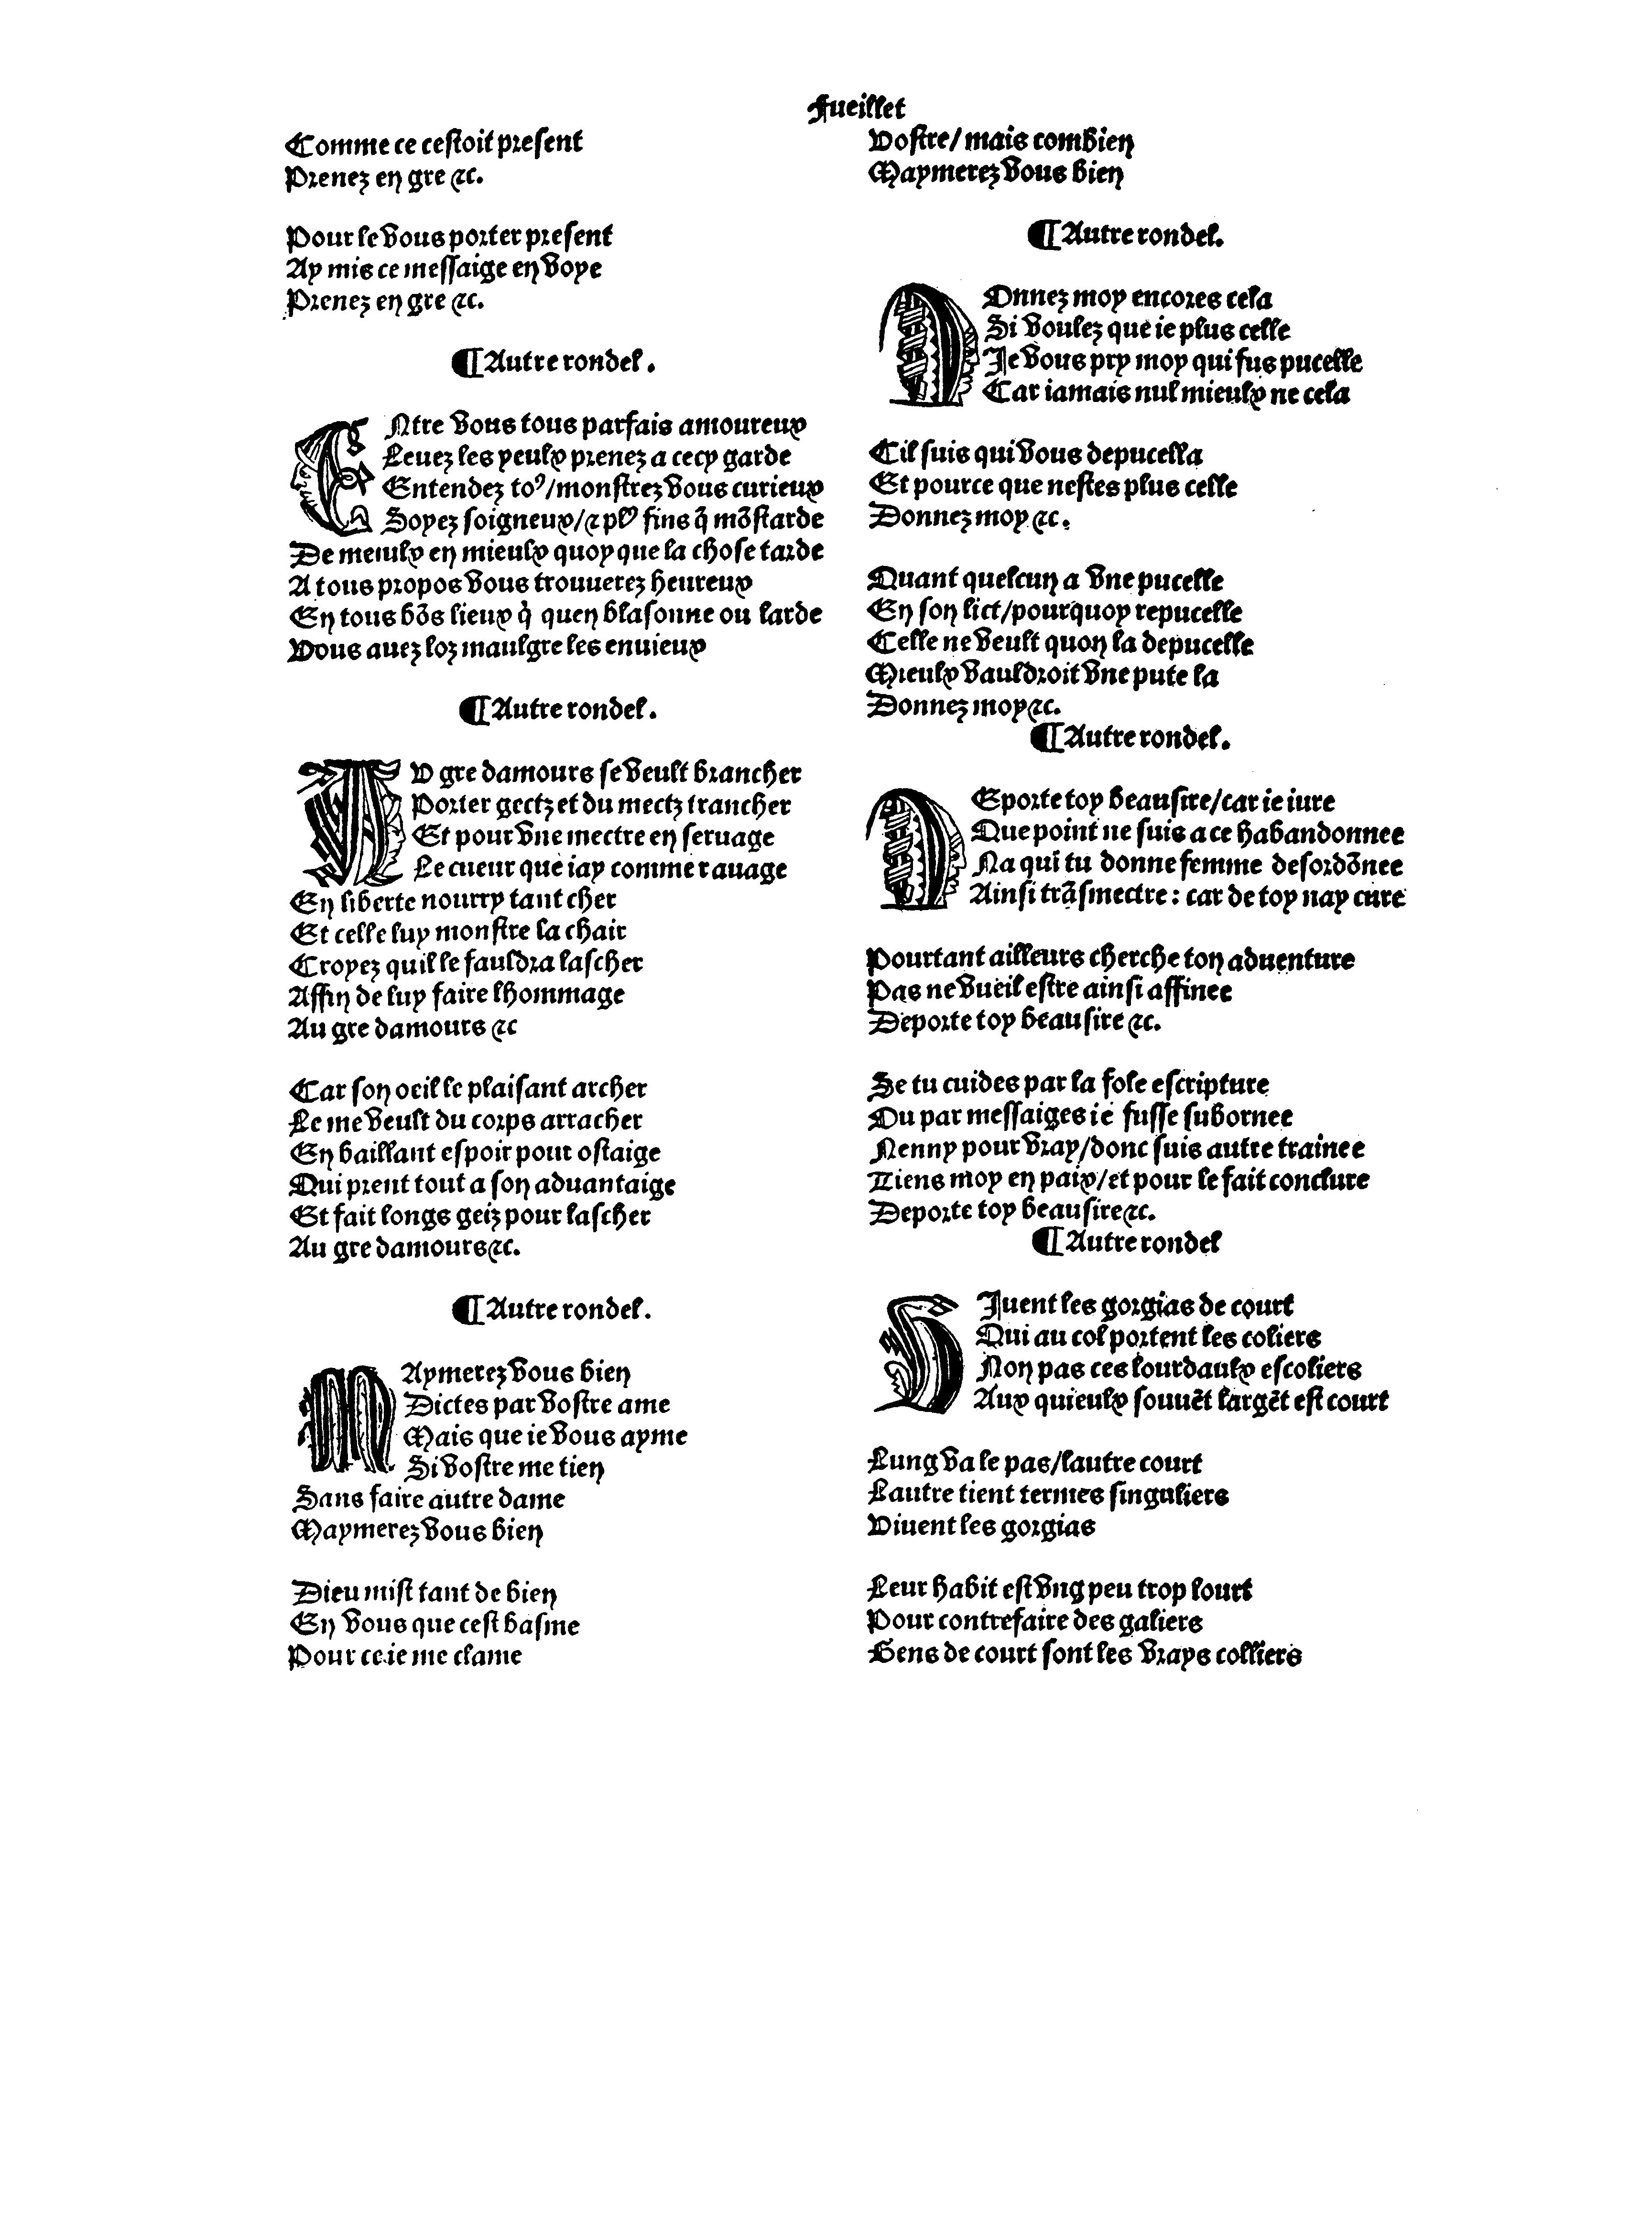 Fueillet
Comme ce cestoit present
Prenez en gre ⁊c.
Pour le vous porter present
Ay mis ce messaige en voye
Prenez en gre ⁊c.
¶Autre rondel.
ENtre vous tous parfais amoureux
Leuez les yeulx prenez a cecy garde
Entendez to⁹/monstrez vous curieux
Soyez soigneux/⁊ pl⁹ fins q̃ mõstarde
De meiulx en mieulx quoy que la chose tarde
A tous propos vous trouuerez heureux
En tous bõs lieux q̃ quen blasonne ou larde
Vous auez loz maulgre les enuieux
¶Autre rondel.
AV gre damours se veult brancher
Porter gectz et du mectz trancher
Et pour vne mectre en seruage
Le cueur que iay comme rauage
En liberte nourry tant cher
Et celle luy monstre la chair
Croyez quil le fauldra lascher
Affin de luy faire lhommage
Au gre damours ⁊c
Car son oeil le plaisant archer
Le me veult du corps arracher
En baillant espoir pour ostaige
Qui prent tout a son aduantaige
Et fait longs geiz pour lascher
Au gre damours⁊c.
¶Autre rondel.
MAymerez vous bien
Dictes par vostre ame
Mais que ie vous ayme
Si vostre me tien
Sans faire autre dame
Maymerez vous bien
Dieu mist tant de bien
En vous que cest basme
Pour ce ie me clame
Vostre/mais combien
Maymerez vous bien
¶Autre rondel.
DOnnez moy encores cela
Si voulez que ie plus celle
Je vous pry moy qui fus pucelle
Car iamais nul mieulx ne cela
Cil suis qui vous depucella
Et pource que nestes plus celle
Donnez moy ⁊c.
Quant quelcun a vne pucelle
En son lict/pourquoy repucelle
Celle ne veult quon la depucelle
Mieulx vauldroit vne pute la
Donnez moy⁊c.
¶Autre rondel.
DEporte toy beau sire/car ie iure
Que point ne suis a ce habandonnee
Na qui tu donne femme desordõnee
Ainsi trãsmectre : car de toy nay cure
Pourtant ailleurs cherche ton aduenture
Pas ne vueil estre ainsi affinee
Deporte toy beau sire ⁊c.
Se tu cuides par la fole escripture
Ou par messaiges ie fusse subornee
Nenny pour vray/donc suis autre trainee
Tiens moy en paix/et pour le fait conclure
Deporte toy beau sire⁊c.
¶Autre rondel
SJuent les gorgias de court
Qui au col portent les coliers
Non pas ces lourdaulx escoliers
Aux quieulx souuẽt largẽt est court
Lung va le pas/lautre court
Lautre tient termes singuliers
Viuent les gorgias
Leur habit est vng peu trop lourt
Pour contrefaire des galiers
Gens de court sont les vrays colliers